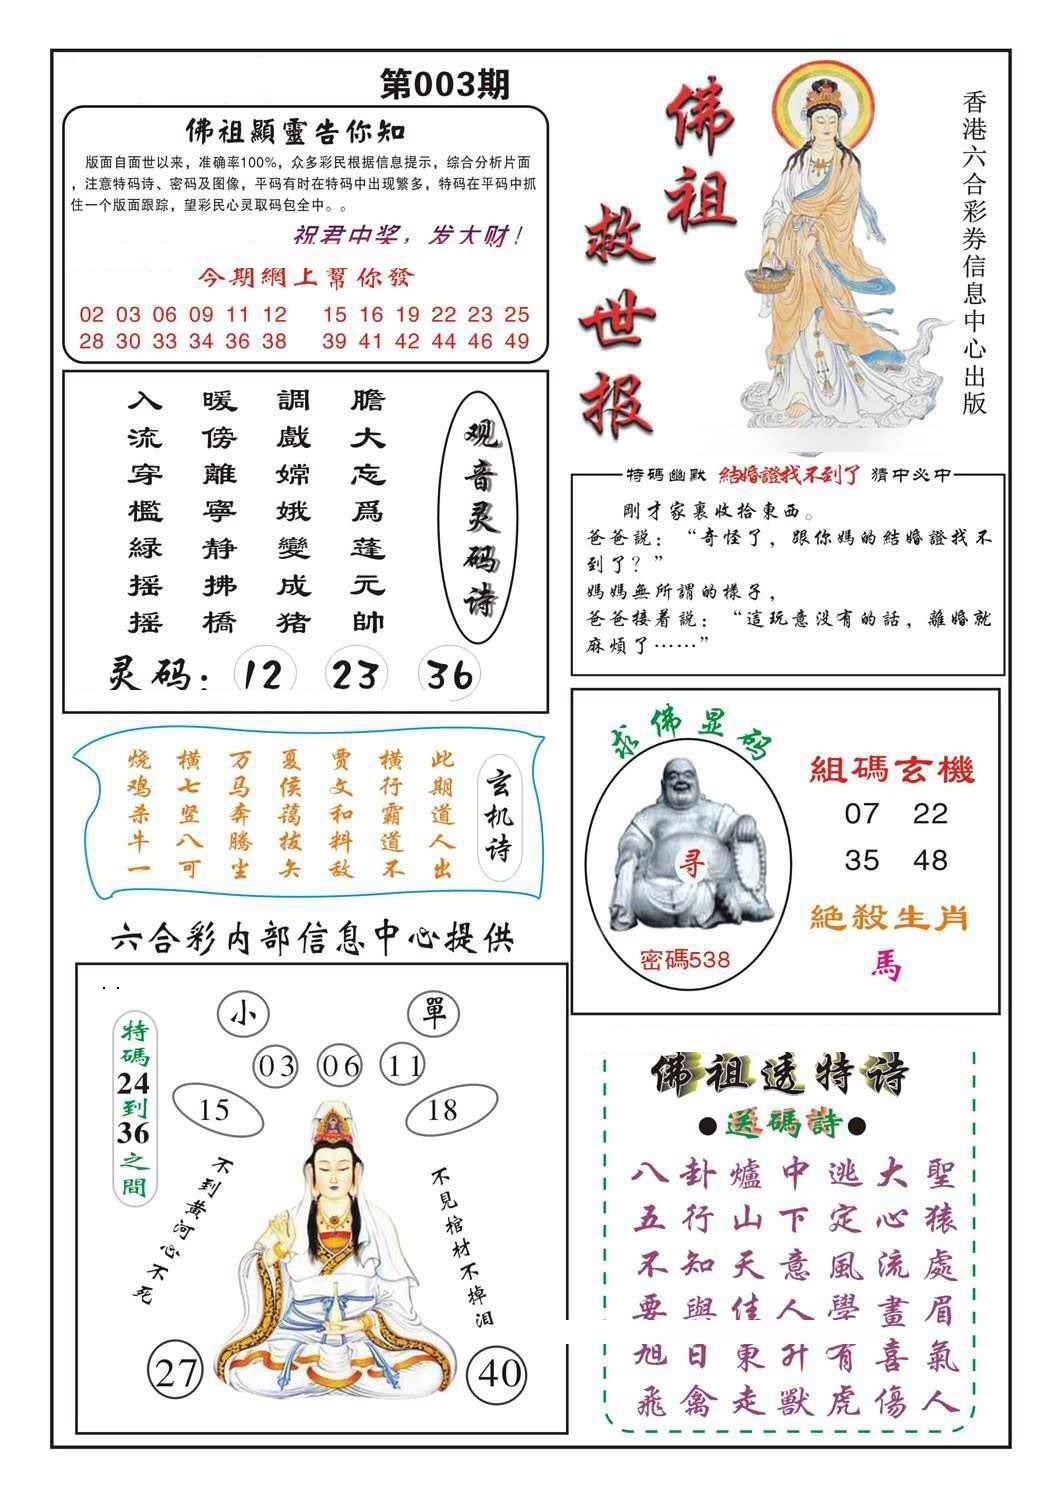 第003期
佛祖顯靈告你知
版面自面世以来，准确率100%，众多彩民根据信息提示，综合分析片面
，注意特码诗、密码及图像，平码有时在特码中出现繁多，特码在平码中抓
住一个版面跟踪，望彩民心灵取码包全中。。
祝君中奖，发大财！
今期網上幫你發
02 03 06 09 11 12 15 16 19 22 23 25
28 30 33 34 36 38 39 41 42 44 46 49
佛祖
救世报
香港六合彩券信息中心出版
观音灵码诗
膽大忘爲蓬元帥
調戲嫦娥變成猪
暖傍離寧静拂橋
入流穿檻緑摇摇
灵码：12 23 36
特碼幽默 結婚證找不到了 猜中必中
剛才家裏收拾東西。
爸爸説：“奇怪了，跟你媽的結婚證找不
到了？”
媽媽無所謂的樣子，
爸爸接着説：“這玩意没有的話，離婚就
麻煩了……”
玄机诗
此期道人出
横行霸道不
贾文和料敌
夏侯蔼拔矢
万马奔騰坐
横七竖八可
烧鸡杀牛一
求佛显码
寻
密碼538
組碼玄機
07 22
35 48
絕殺生肖
馬
六合彩内部信息中心提供
特碼24到36之間
小
單
03 06 11
15
18
不到黄河心不死
不見棺材不掉泪
27
40
佛祖透特诗
●送碼詩●
八卦爐中逃大聖
五行山下定心猿
不知天意風流處
要與佳人學畫眉
旭日東升有喜氣
飛禽走獸虎傷人